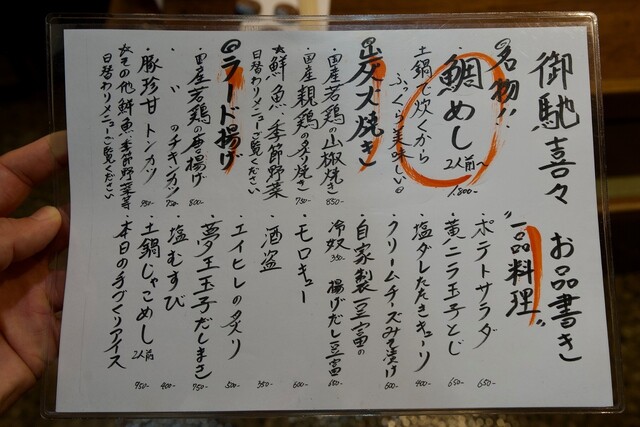 御馳喜々 お品書き
名物!!
・鯛めし 2人前〜 1,800-
土鍋で炊くから
ふっくら美味しい◎
炭火焼き
・国産若鶏の山椒焼き 850-
・国産親鶏の炙り焼き 750-
☆鮮魚、季節野菜
日替わりメニューご覧ください
◎ラード揚げ
・国産若鶏の唐揚げ 800-
・〃のチキンカツ 750-
・豚珍甘トンカツ 950-
☆その他鮮魚、季節野菜等
日替わりメニューご覧ください
"一品料理"
・ポテトサラダ 650-
・黄ニラ玉子とじ 650-
・塩ダレたたきキューリ 400-
・クリームチーズみそ漬け 600-
・自家製豆富の
冷奴 350- 揚げだし豆富 650-
・モロキュー 600-
・酒盗 350-
・エイヒレの炙り 500-
・夢王玉子だしまき 750-
・塩むすび 400-
・土鍋じゃこめし 2人前 950-
・本日の手づくりアイス